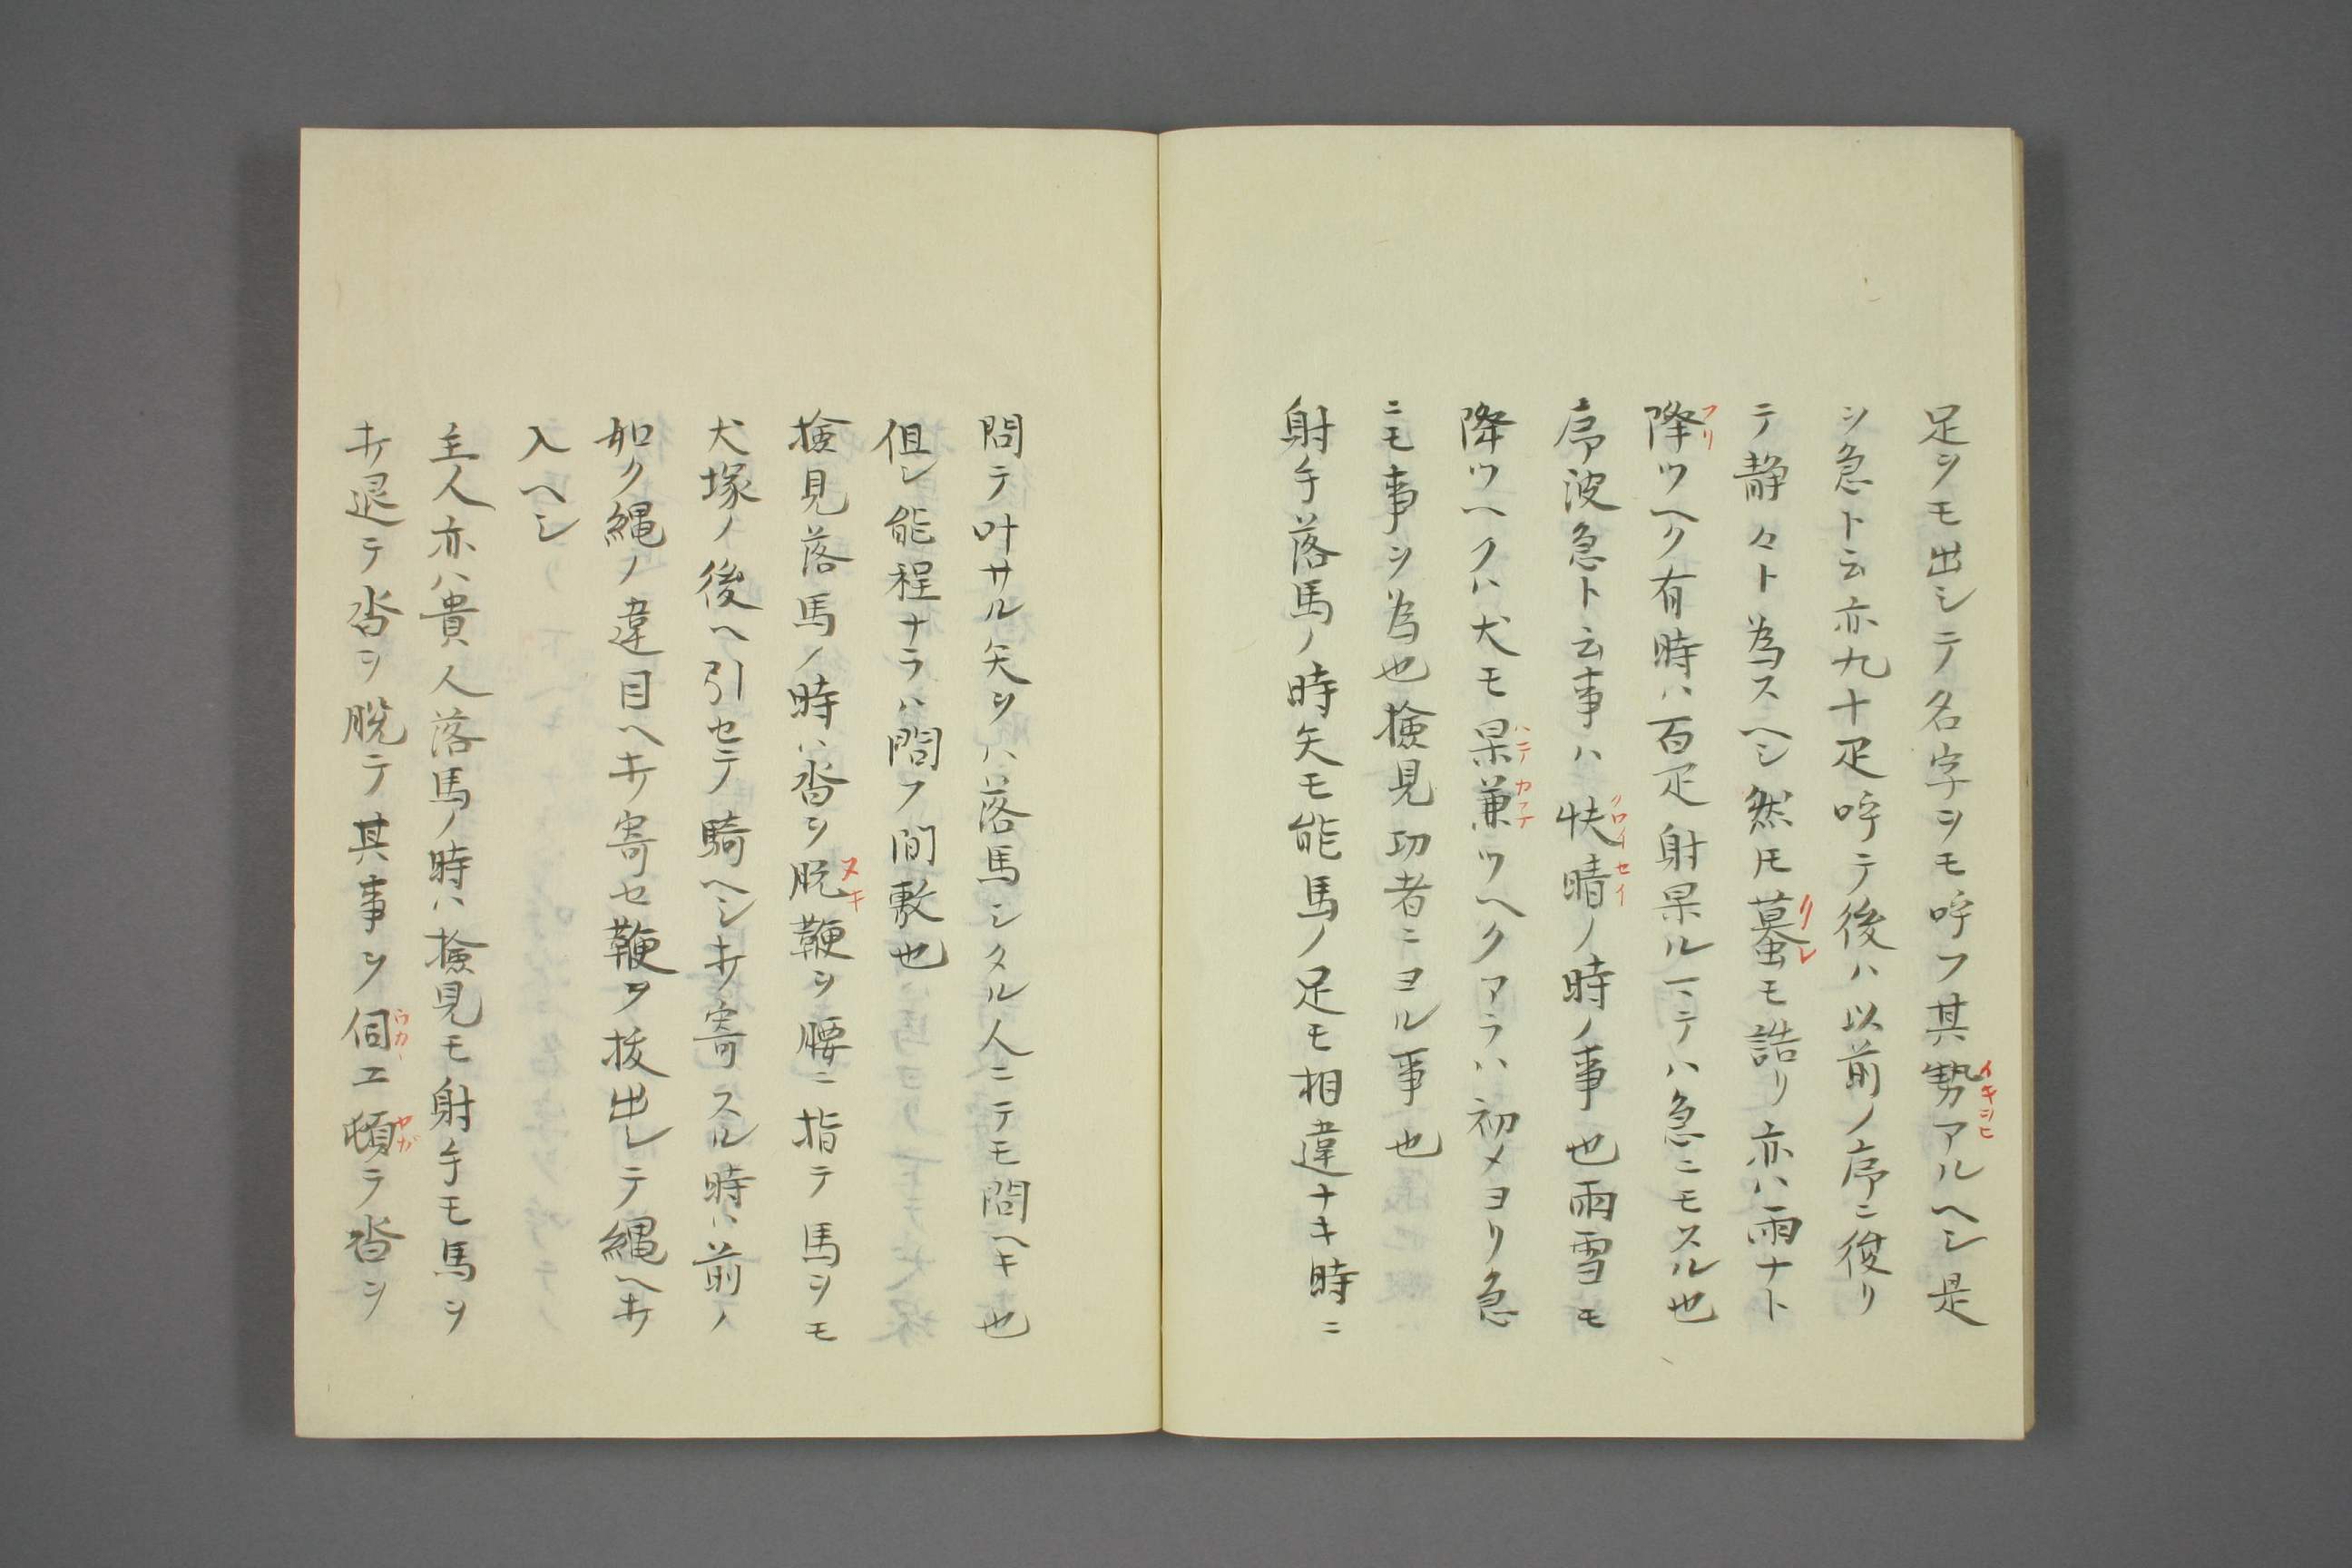 足ヲモ出シテ名字ヲモ呼フ其勢アルヘシ是
イキヲヒ
ヲ急ト云亦九十疋呼テ後ハ以前ノ序ニ復リ
テ静々ト為スヘシ然𪜈蟇モ詰リ亦ハ雨ナト
クレ
降ツヘク有時ハ百疋射果ルマテハ急ニモスル也
フリ
序波急ト云事ハ快晴ノ時ノ事也雨雪モ
クワイセイ
降ツヘクハ犬モ果兼ツヘクアラハ初メヨリ急
ハテカ子テ
ニモ事ヲ為也検見功者ニヨル事也
射手落馬ノ時矢モ能馬ノ足モ相違ナキ時ニ
問テ叶サル矢ヲハ落馬シタル人ニテモ問ヘキ也
但シ能程ナラハ問フ間敷也
検見落馬ノ時ハ沓ヲ脱鞭ヲ腰ニ指テ馬ヲモ
ヌキ
犬塚ノ後ヘ引セテ騎ヘシ打寄スル時ハ前ノ
如ク縄ノ違目ヘ打寄セ鞭ヲ抜出シテ縄ヘ打
入ヘシ
主人亦ハ貴人落馬ノ時ハ検見モ射手モ馬ヲ
打退テ沓ヲ脱テ其事ヲ伺エ頓テ沓ヲ
ウカー
ヤガ